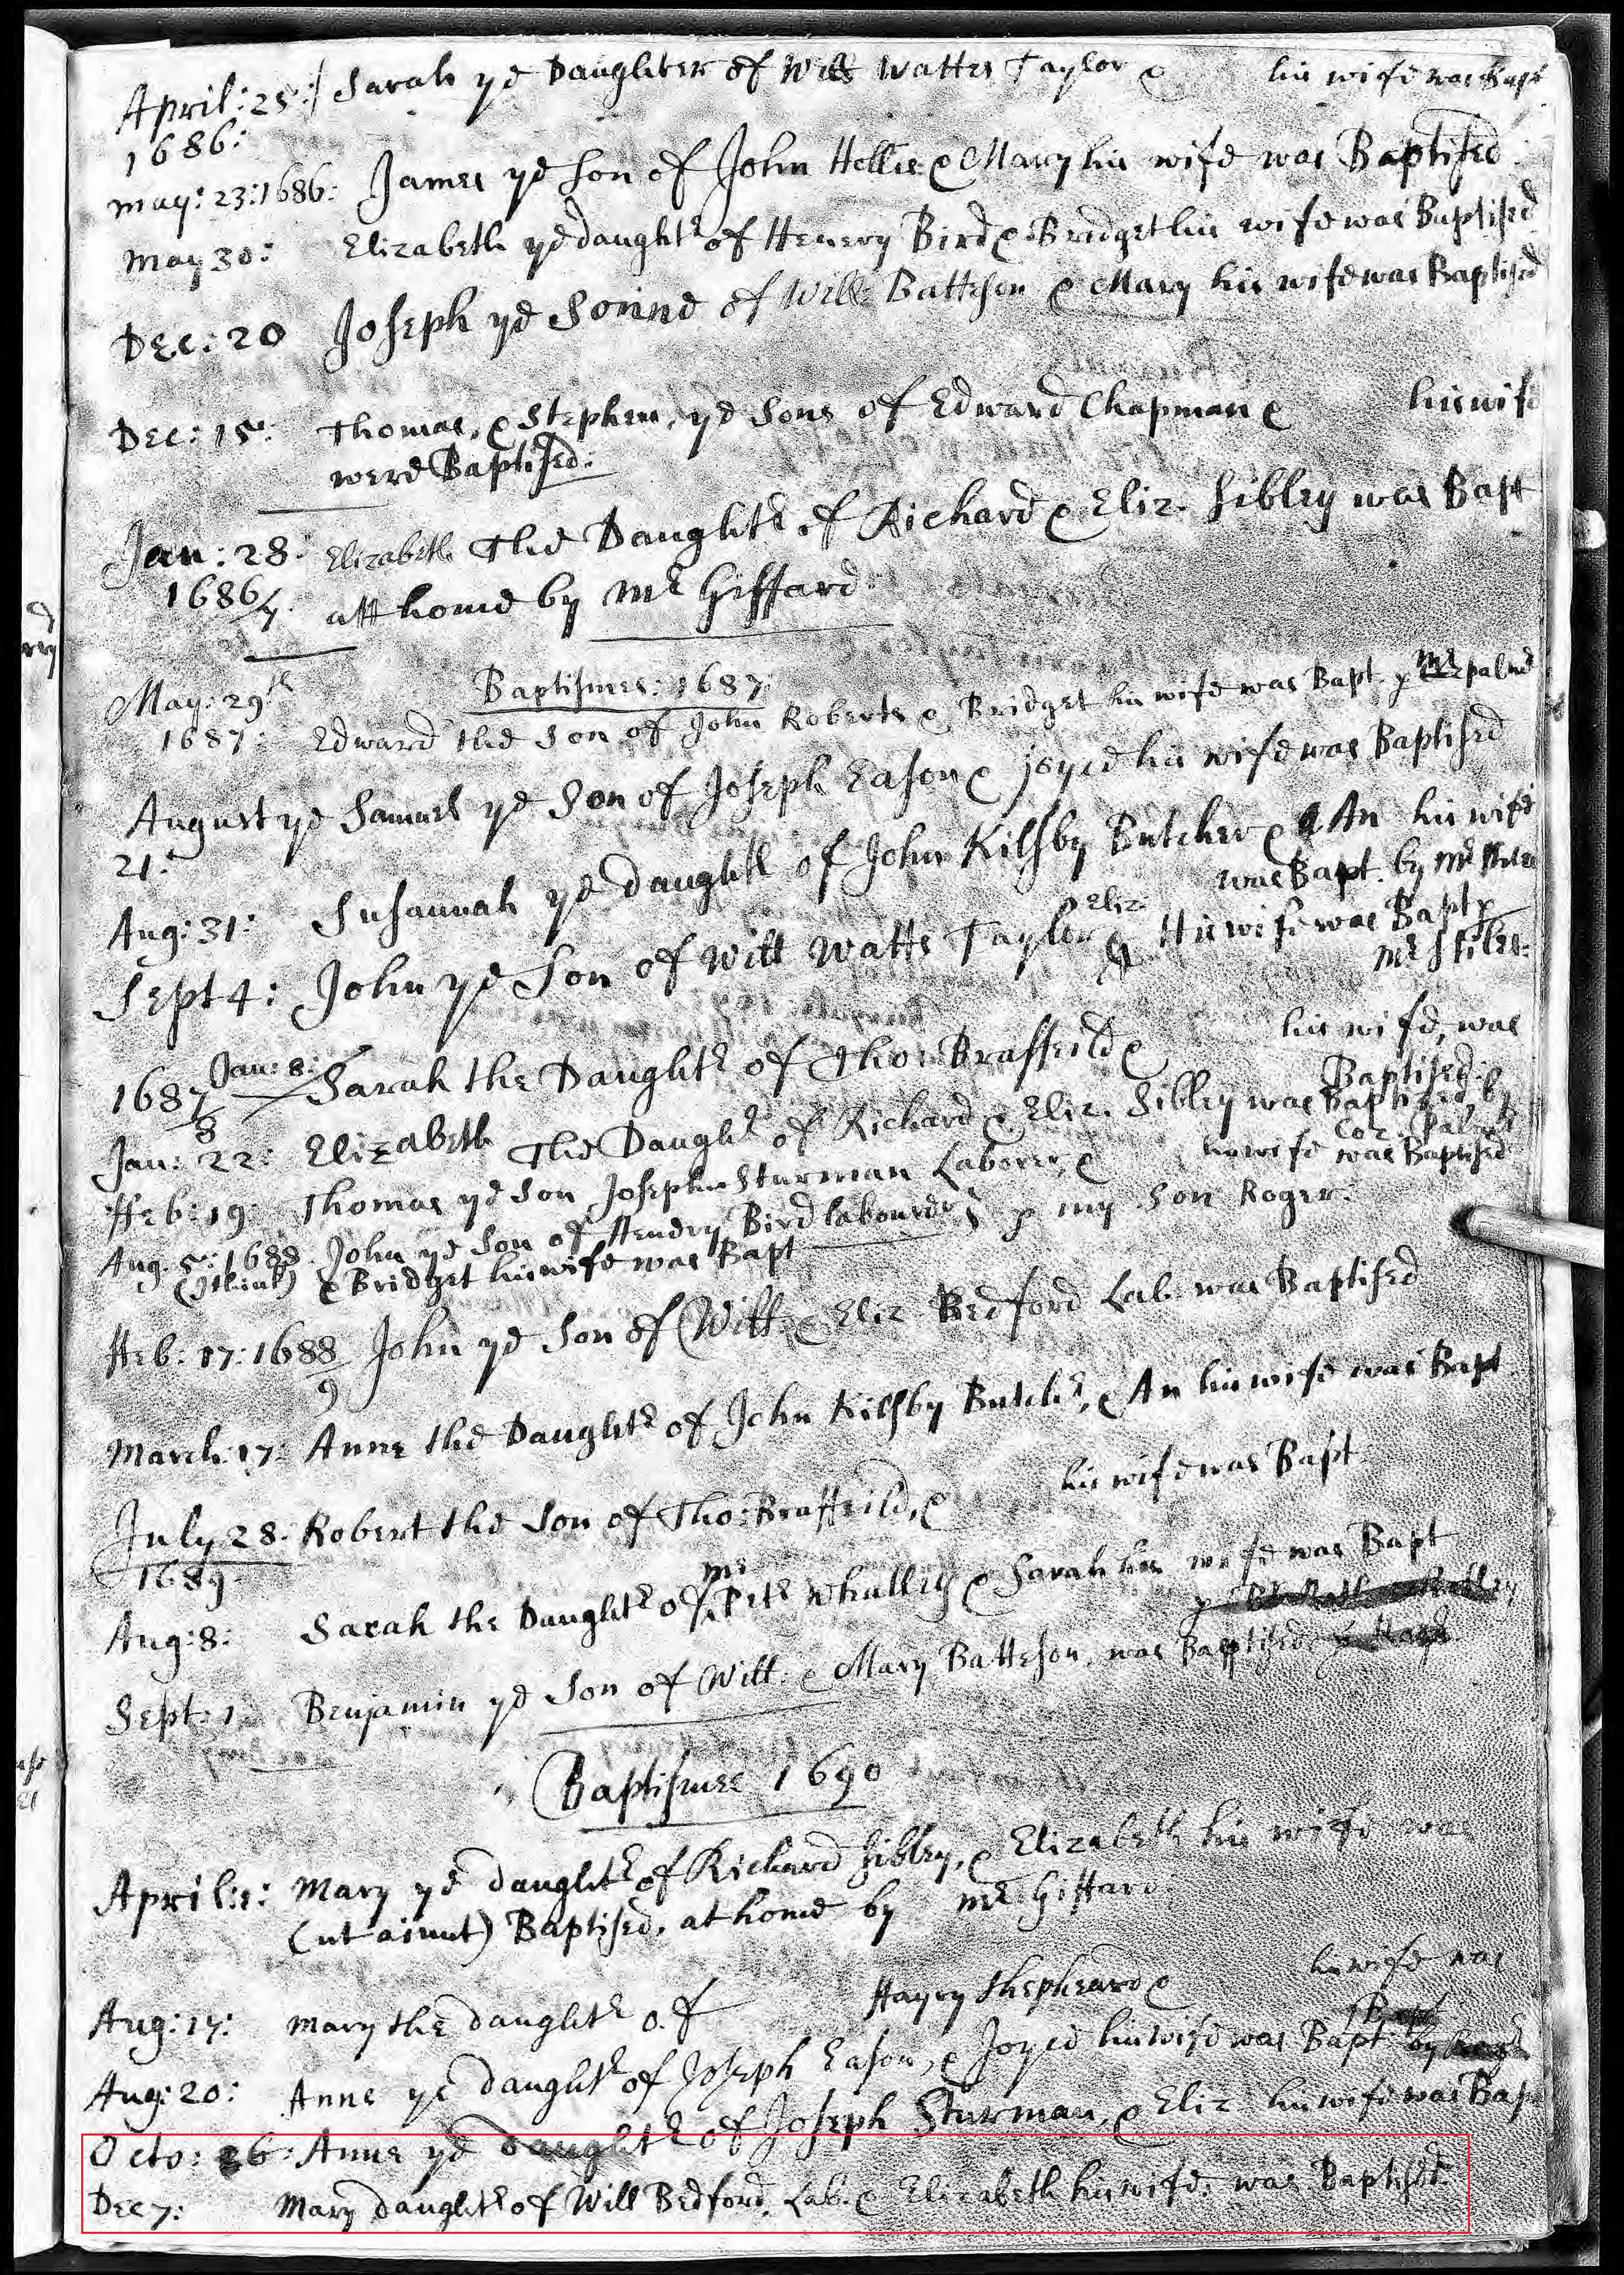 April: 25: Sarah yd Daughter of Will Watts Taylor & his wife was Bapt
1686:
may: 23: 1686: James yd Son of John Hellis & Mary his wife was Baptised
May 30: Elizabeth yd daughtr of Henery Bird & Bridget his wife was Baptised
Dec: 20 Joseph yd Sonne of Will: Batteson & Mary his wife was Baptised
Dec: 15: Thomas, & Stephen, yd Sons of Edward Chapman & his wife
were Baptised:
Jan: 28: Elizabeth The Daughtr of Richard & Eliz. Sibley was Bapt
1686/7. att home by Mr Giffard:
Baptismes: 1687:
May: 29th
1687: Edward the Son of John Roberts & Bridget his wife was Bapt. p Mr palmr
August yd Samuel yd Son of Joseph Eason & joyce his wife was Baptised
21:
Aug: 31: Susannah yd daughtr of John Kilsby Butcher & An his wife
was Bapt. by Mr
Sept 4: John yd Son of Will Watts Taylor & Eliz His wife was Bapt p
Mr Stiles:
1687/8 Jan: 8: Sarah the Daughtr of Tho: Braffeild & his wife, was
Baptised:
Jan: 22: Elizabeth The Daughtr of Richard & Eliz. Sibley was Baptized by
Coz. Palmr
Feb: 19: Thomas yd Son Joseph Sturman Laborer, & his wife was Baptised
p my Son Roger.
Aug. 5: 1688. John yd Son of Hendry Bird labourer
(I think) & Bridget his wife was Bapt
Feb: 17: 1688/9 John yd Son of Will. & Eliz Bedford Lab. was Baptised
March: 17: Anne the Daughtr of John Kilsby Butchr, & An his wife was Bapt
July 28. Robert the Son of Tho: Braffeild, & his wife was Bapt.
1689.
Aug: 8: Sarah the Daughtr of Mr Petr Whalley & Sarah his wife was Bapt
p
Sept: 1. Benjamin yd Son of Will. & Mary Batteson, was Baptised
Baptismes 1690
April: 1: Mary yd daughtr of Richard Sibley, & Elizabeth his wife was
(ut aiunt) Baptised, at home by Mr Giffard.
Aug: 17: Mary the daughtr of Harry Shepheard & his wife was
Bapt
Aug: 20: Anne ye daughtr of Joseph Eason, & Joyce his wife was Bapt by
Octo: 26: Anne yd daughtr of Joseph Sturman, & Eliz his wife was Bapt
Dec 7: Mary daughtr of Will Bedford, Lab. & Elizabeth his wife: was Baptised.